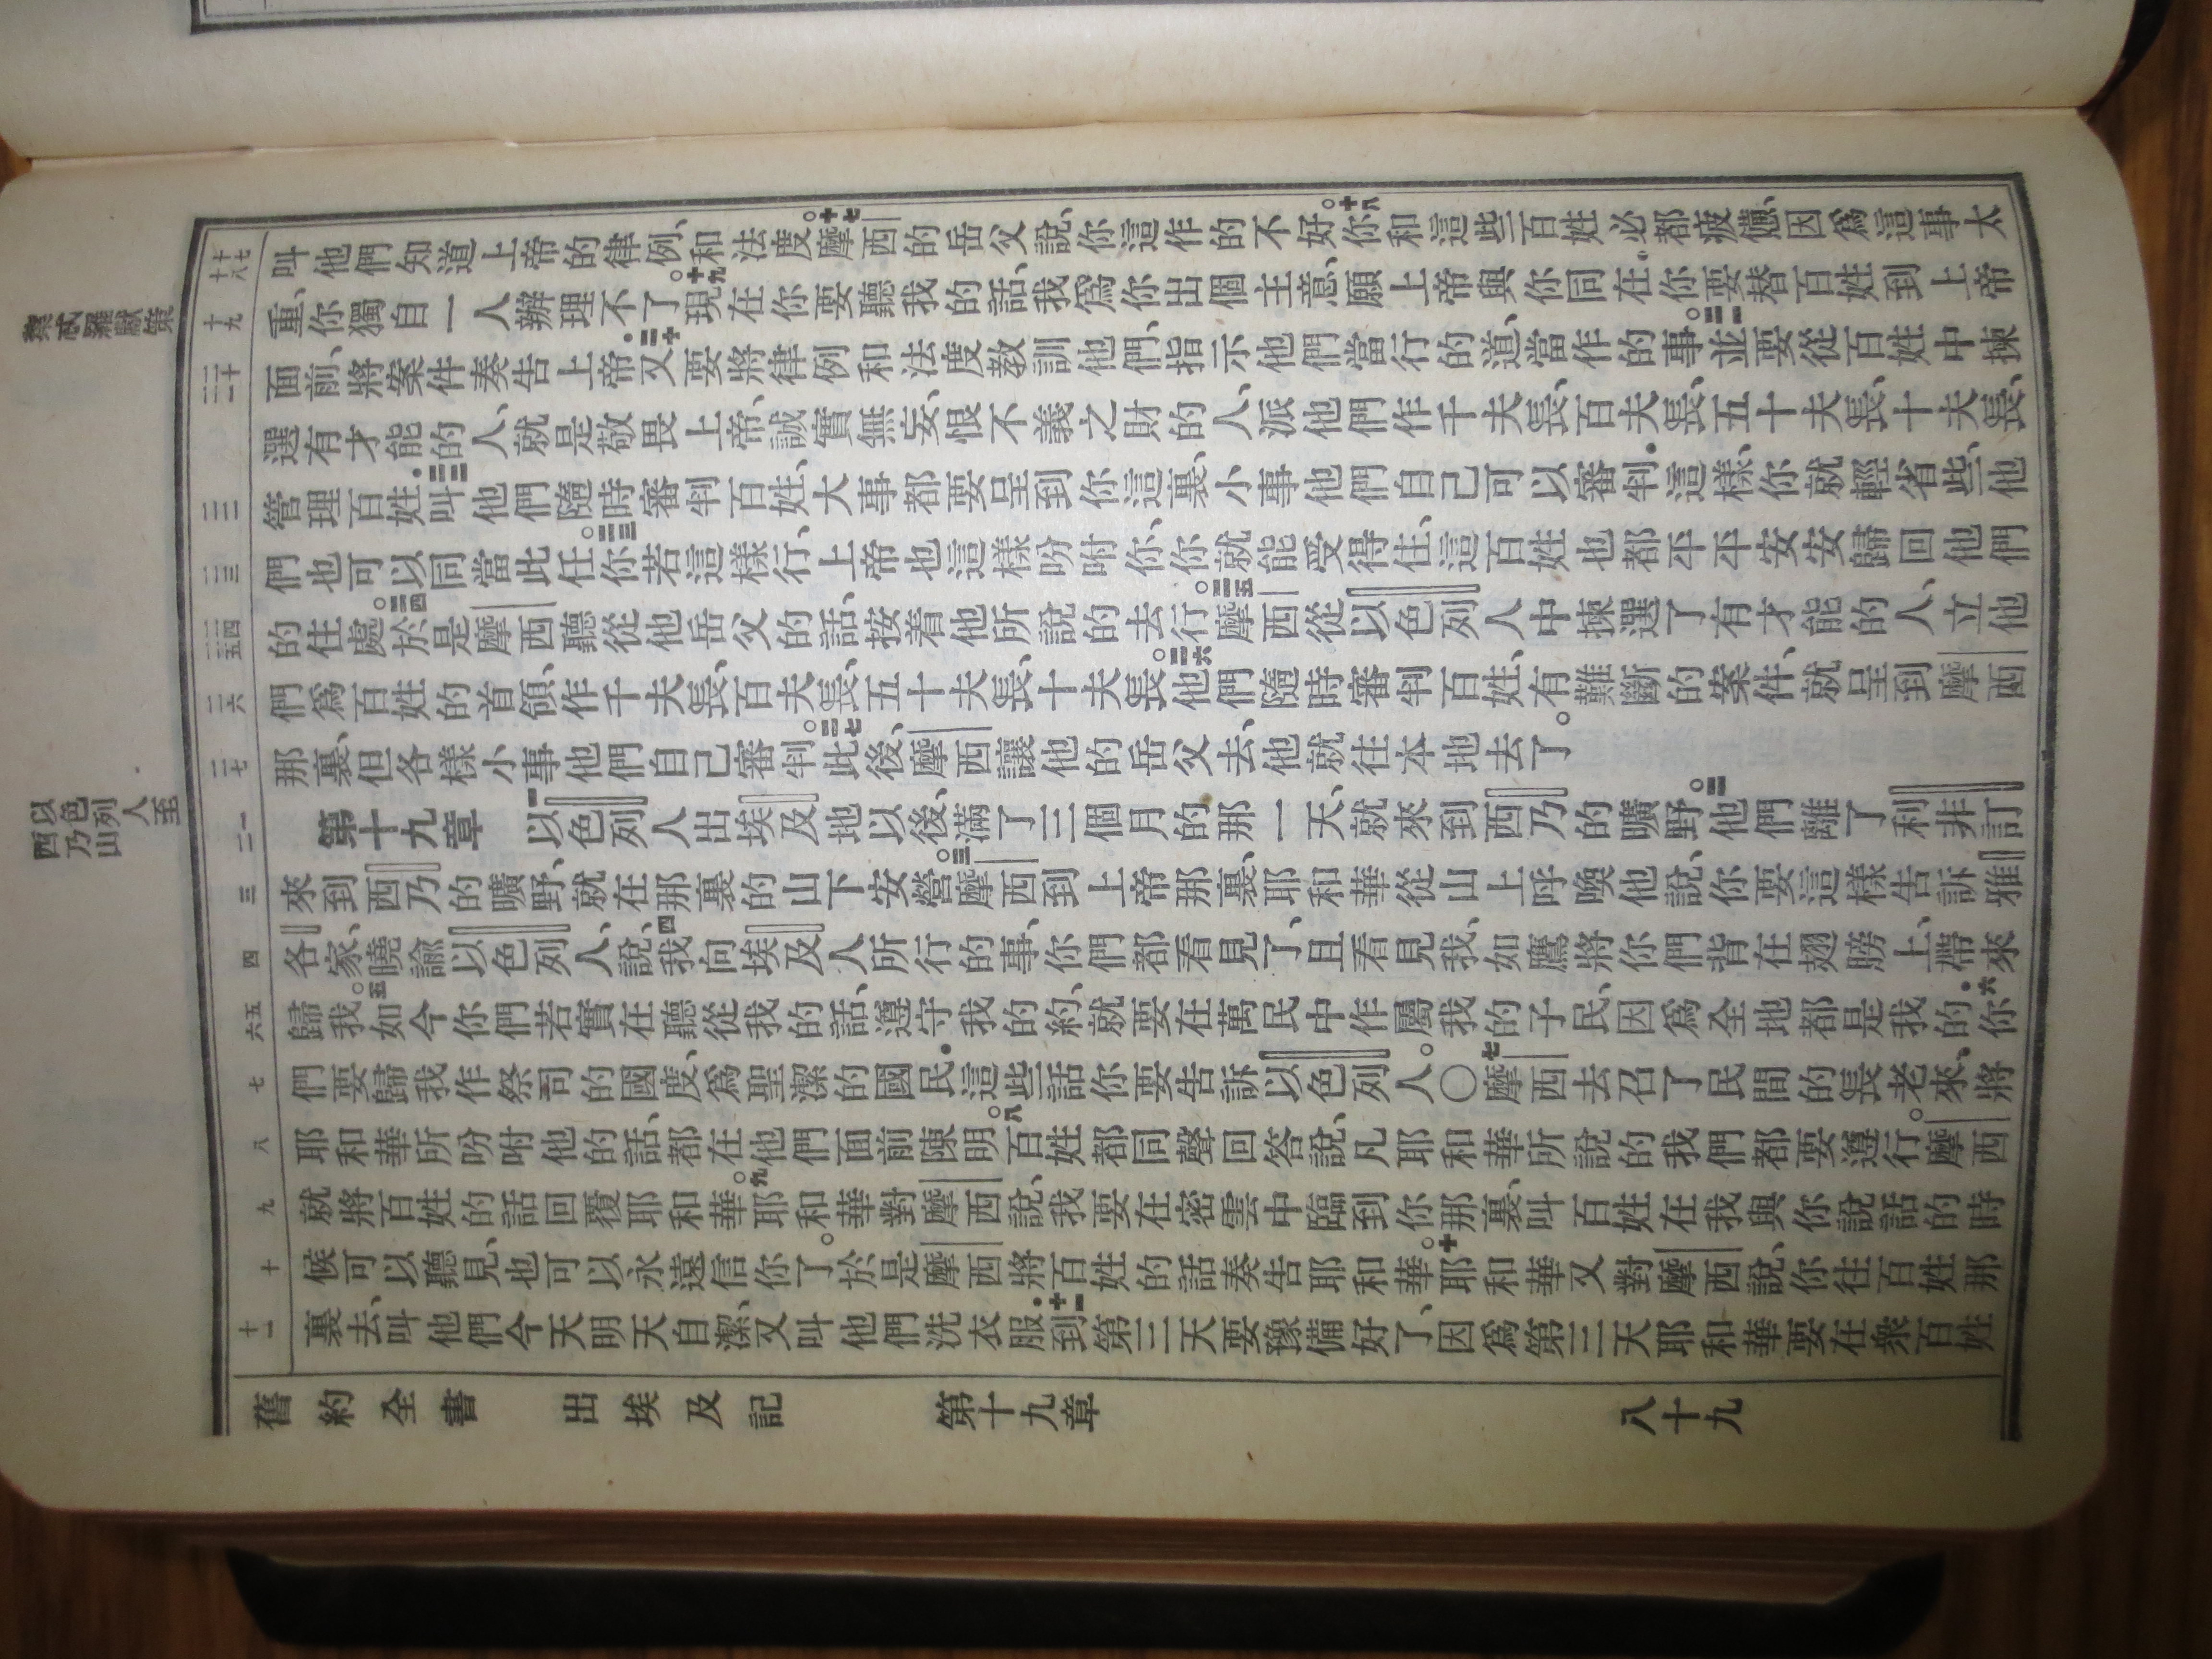 葉忒羅獻策
十七 十八
叫他們知道上帝的律例、和法度。十七摩西的岳父說、你這作的不好。十八你和這些百姓必都疲憊、因爲這事太
十九
重、你獨自一人辦理不了。十九現在你要聽我的話、我爲你出個主意、願上帝與你同在、你要替百姓到上帝
二十 二一
面前、將案件奏告上帝．二十又要將律例和法度教訓他們、指示他們當行的道、當作的事。二一並要從百姓中揀
選有才能的人、就是敬畏上帝、誠實無妄、恨不義之財的人、派他們作千夫長、百夫長、五十夫長、十夫長、
二二
管理百姓．二二叫他們隨時審判百姓、大事都要呈到你這裏、小事他們自己可以審判．這樣、你就輕省些、他
二三
們也可以同當此任。二三你若這樣行、上帝也這樣吩咐你、你就能受得住、這百姓也都平平安安歸回他們
二四 二五
的住處。二四於是摩西聽從他岳父的話、按着他所說的去行。二五摩西從以色列人中揀選了有才能的人、立他
二六
們爲百姓的首領、作千夫長、百夫長、五十夫長、十夫長。二六他們隨時審判百姓、有難斷的案件、就呈到摩西
二七
那裏、但各樣小事他們自己審判。二七此後、摩西讓他的岳父去、他就往本地去了。
以色列人至
西乃山
一 二
第十九章 一以色列人出埃及地以後、滿了三個月的那一天、就來到西乃的曠野。二他們離了利非訂
三
來到西乃的曠野、就在那裏的山下安營。三摩西到上帝那裏、耶和華從山上呼喚他說、你要這樣告訴雅
四
各家、曉諭以色列人、說、四我向埃及人所行的事、你們都看見了、且看見我、如鷹將你們背在翅膀上、帶來
五 六
歸我。五如今你們若實在聽從我的話、遵守我的約、就要在萬民中作屬我的子民、因爲全地都是我的．六你
七
們要歸我作祭司的國度、爲聖潔的國民．這些話你要告訴以色列人。○七摩西去召了民間的長老來、將
八
耶和華所吩咐他的話、都在他們面前陳明。八百姓都同聲回答說、凡耶和華所說的我們都要遵行。摩西
九
就將百姓的話回覆耶和華。九耶和華對摩西說、我要在密雲中臨到你那裏、叫百姓在我與你說話的時
十
候可以聽見、也可以永遠信你了。於是摩西將百姓的話奏告耶和華。十耶和華又對摩西說、你往百姓那
十一
裏去、叫他們今天明天自潔、又叫他們洗衣服．十一到第三天要豫備好了、因爲第三天耶和華要在衆百姓
舊約全書 出埃及記 第十九章 八十九